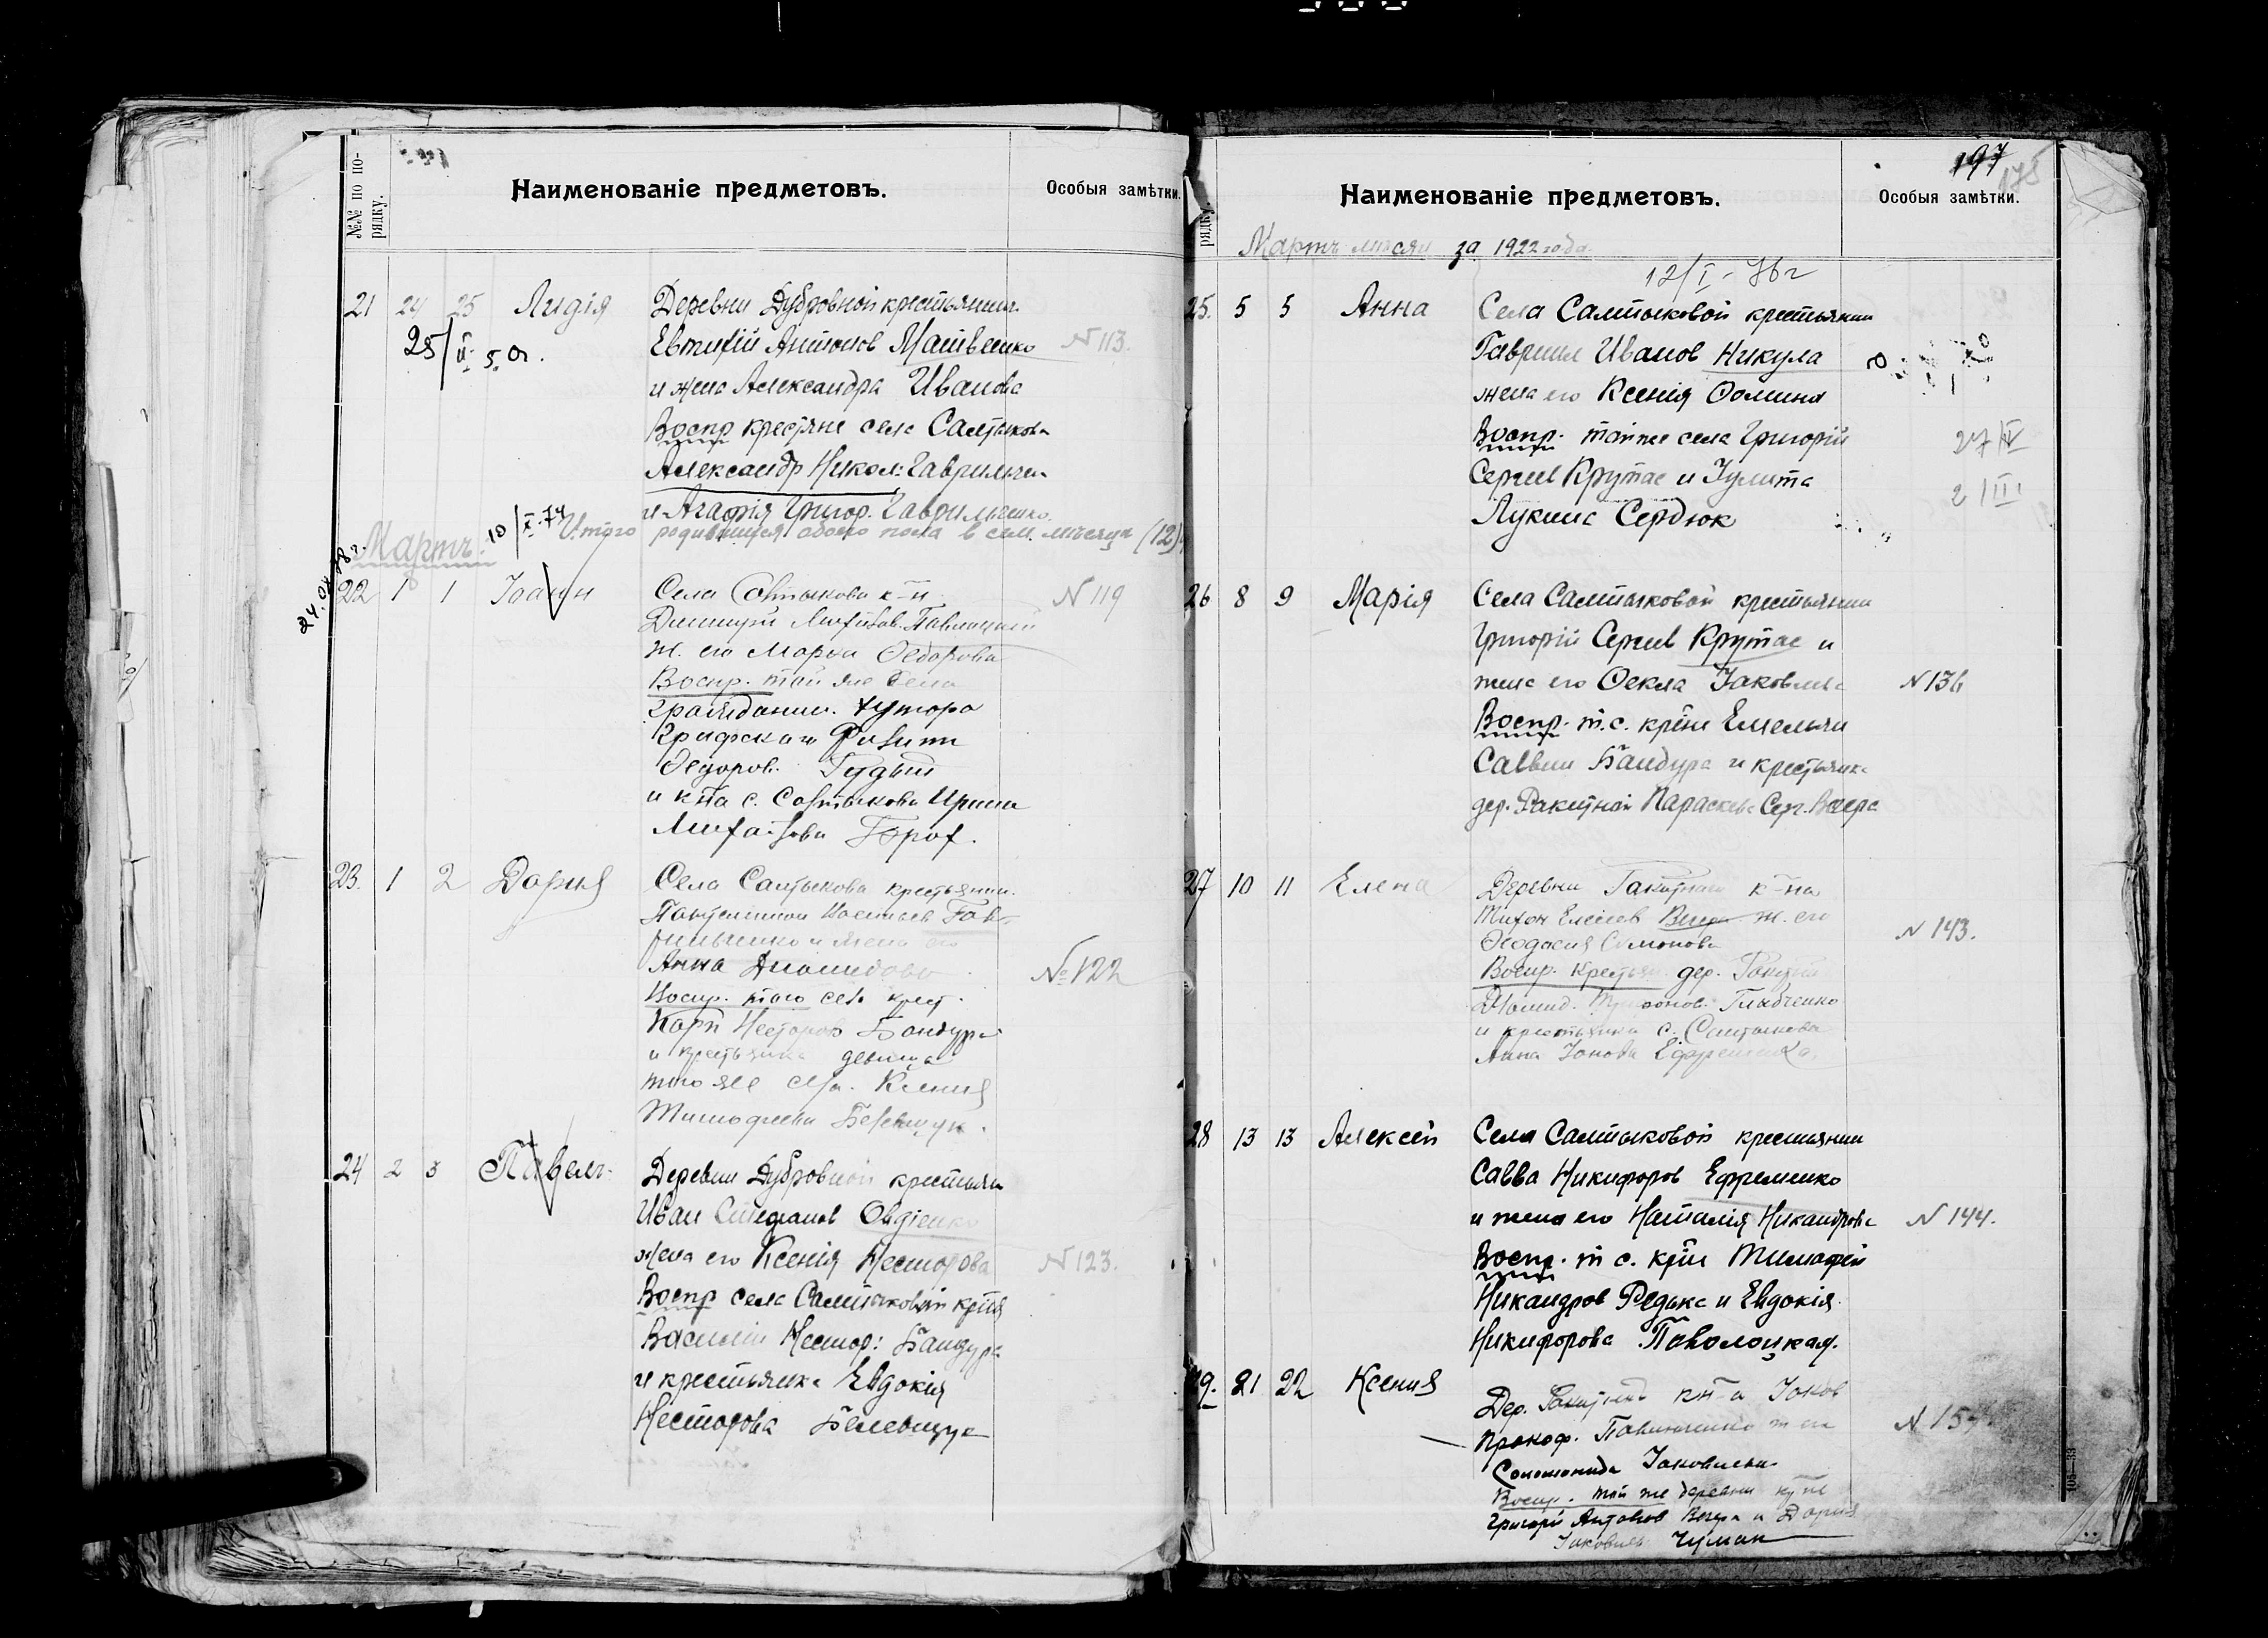 №№ по по-
рядку.
Наименованіе предметовъ.
Особыя замѣтки.
21 24 25 Лидія
Деревни Дубровной крестьянин
25/II 5. г.
Евтихій Антонов Матвеенко
N 113.
и жена Александра Иванова
Воспр крестяне села Салтыкова
Александр Никол: Гаврильчен
и Агафія Григор. Гаврильченко
10/X-74
Итого родившихся обоего пола в сем месяце (12)
Мартъ.
22 1 1 Іоанн
Села Салтыкова к-н
N 119
ж. его Марѳа Ѳедорова
Воспр. той же села
граждании. хутора
Ѳедоров. Гудым
и к-на с. Салтыкова Ирина
Михайлова Горох.
23. 1 2 Дария
Села Салтыкова крестьянин.
Пантелимон Гав-
рильченко и жена его
Анна Диомидова
№ 122
Воспр. того села крест.
Карп Несторов Бондура
и крестьянка девица
того же села. Ксения
Тимофеева Белевщук.
24 2 3 Павелъ
Деревни Дубровной крестьян
Иван Стефанов Овдіенко
жена его Ксенія Несторова
N 123.
Воспр села Салтыковой кр-не
Василій Нестор: Бандура
и крестьянка Евдокія
Несторова Белевщук
рядку
Наименованіе предметовъ.
197
175
Особыя замѣтки.
Мартъ месяц за 1922 года
12/I-76 г
25. 5 5 Анна
Села Салтыковой крестьянин
Гавриил Иванов Никула
жена его Ксенія Ѳомина
Воспр. той же села Григорій
27/IV
Сергиев Крутас и Іулита
2/III
Лукина Сердюк
26 8 9 Марія
Села Салтыковой крестьянин
Григорій Сергиев Крутас и
жена его Ѳекла Іаковлева
N 136
Воспр. т. с. кр-не Емельян
Саввин Бандура и крестьянка
дер. Ракитной Параскева Серг. Вегера
27 10 11 Елена
Деревни Ракитной к-на
Тихон Елисеев Вегера ж. его
Ѳеодосия Симонова
N 143.
Воспр. Крестьян. дер. Ракитн
Диомид. Гладченко
и крестьянка с. Салтыкова
Анна Іонова Ефременко.
28 13 13 Алексей
Села Салтыковой крестьянин
Савва Никифоров Ефременко
и жена его Наталія Никандрова
N 144.
Воспр. т с. кр-не Тимофей
Никандров Редька и Евдокія
Никифорова Паволоцкая.
29. 21 22 Ксения
Дер. Ракитной кн-а Іаков
Прокоф. ж его
N 15
Соломонида Іаковлева
Воспр. той же деревни кр-не
Григорій Антонов Вегера и Дария
Іаковлев. Чуман